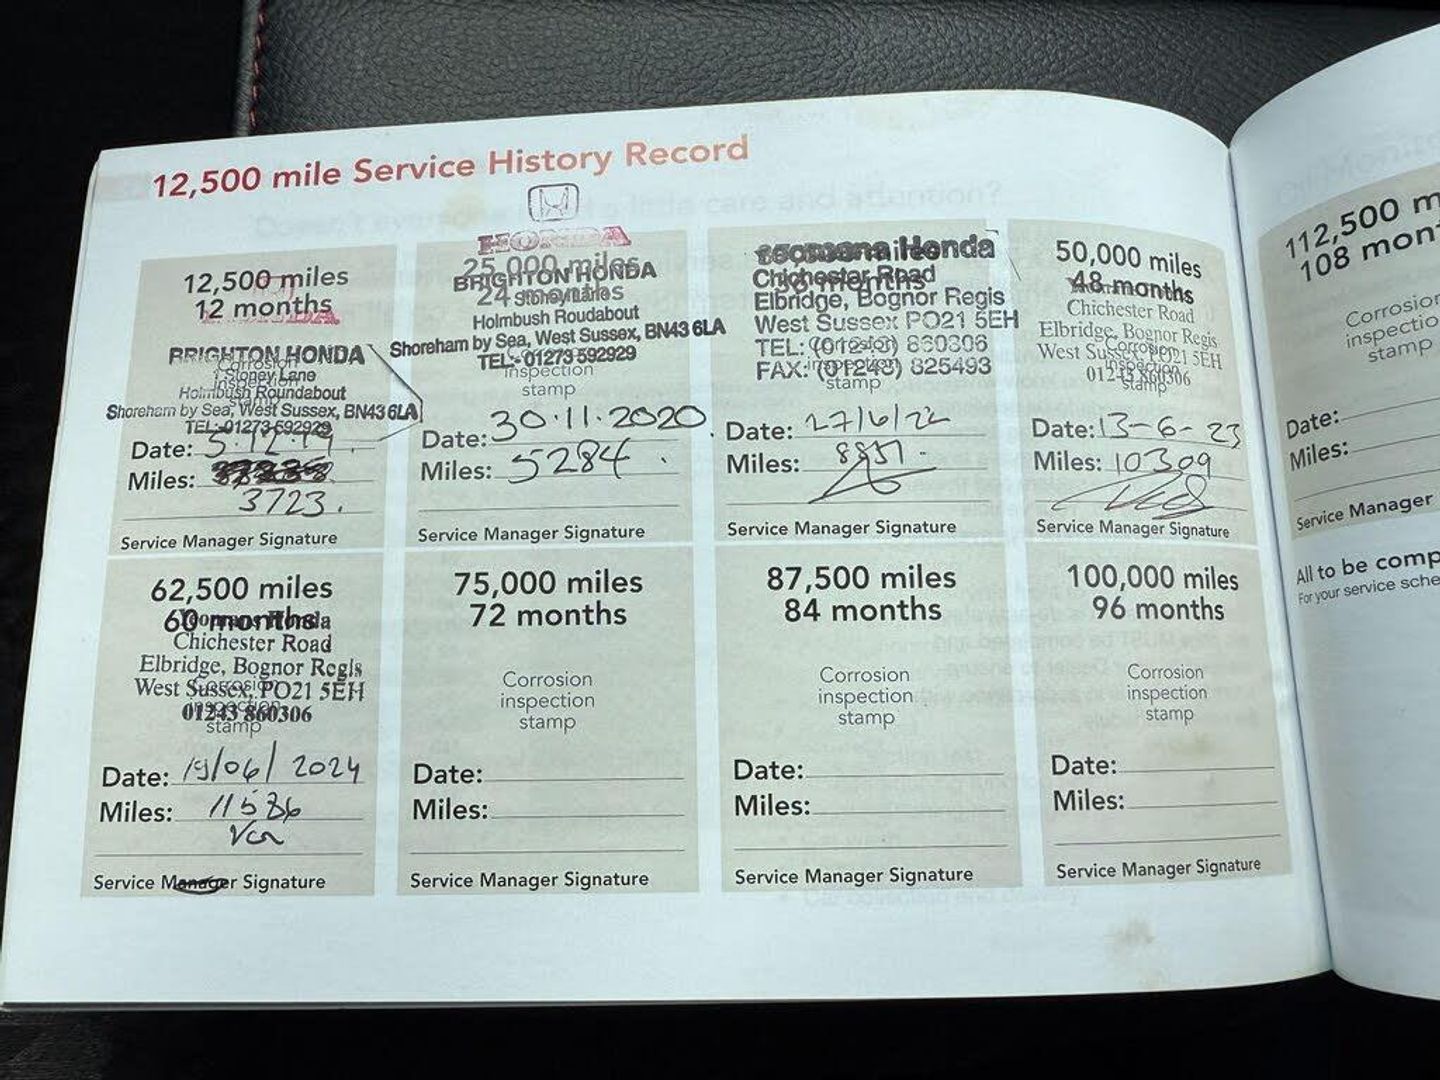 12,500 mile Service History Record
12,500 miles
12 months
HONDA
BRIGHTON HONDA
Corrosion
inspection
stamp
1 Stoney Lane
Holmbush Roundabout
Shoreham by Sea, West Sussex, BN43 6LA
TEL:-01273-592929
Date: 5.12.19.
Miles:
3723.
Service Manager Signature
HONDA
25,000 miles
24 months
BRIGHTON HONDA
1 Stoney Lane
Holmbush Roudabout
Shoreham by Sea, West Sussex, BN43 6LA
TEL:-01273-592929
inspection
stamp
Date: 30.11.2020.
Miles: 5284.
Service Manager Signature
Honda
miles
months
Chichester Road
Elbridge, Bognor Regis
West Sussex PO21 5EH
TEL: (01243) 860306
FAX: (01243) 825493
Corrosion
inspection
stamp
Date: 27/6/22
Miles: 8851.
Service Manager Signature
50,000 miles
48 months
Chichester Road
Elbridge, Bognor Regis
West Sussex, PO21 5EH
01243 860306
Corrosion
inspection
stamp
Date: 13-6-23
Miles: 10309
Service Manager Signature
62,500 miles
60 months
Honda
Chichester Road
Elbridge, Bognor Regis
West Sussex, PO21 5EH
01243 860306
Corrosion
inspection
stamp
Date: 19/06/2024
Miles: 11586
Service Manager Signature
75,000 miles
72 months
Corrosion
inspection
stamp
Date:
Miles:
Service Manager Signature
87,500 miles
84 months
Corrosion
inspection
stamp
Date:
Miles:
Service Manager Signature
100,000 miles
96 months
Corrosion
inspection
stamp
Date:
Miles:
Service Manager Signature
112,500 m
108 mont
Corrosion
inspectio
stamp
Date:
Miles:
Service Manager
All to be comp
For your service sche